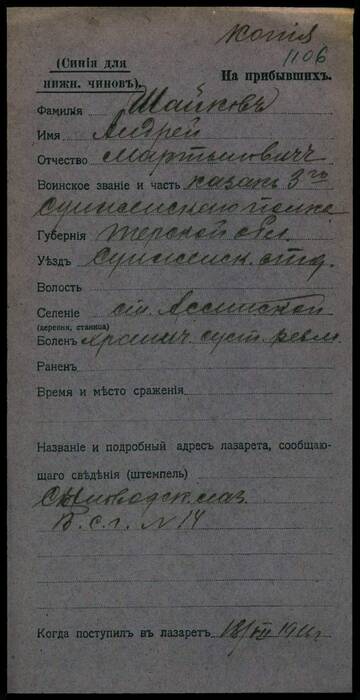 копія
1106
(Синія для
нижн. чиновъ).
На прибывшихъ.
Фамилія Шайковъ
Имя Андрей
Отчество Мартыновичъ
Воинское званіе и часть казакъ 3го
Сунженскаго полка
Губернія Терской обл.
Уѣздъ Сунженск. отд.
Волость
Селеніе ст. Ассинской
(деревня, станица)
Боленъ хронич. суст. ревм.
Раненъ
Время и мѣсто сраженія
Названіе и подробный адресъ лазарета, сообщаю-
щаго свѣдѣнія (штемпель)
В. с. г. N 14
Когда поступилъ въ лазаретъ 18/VII